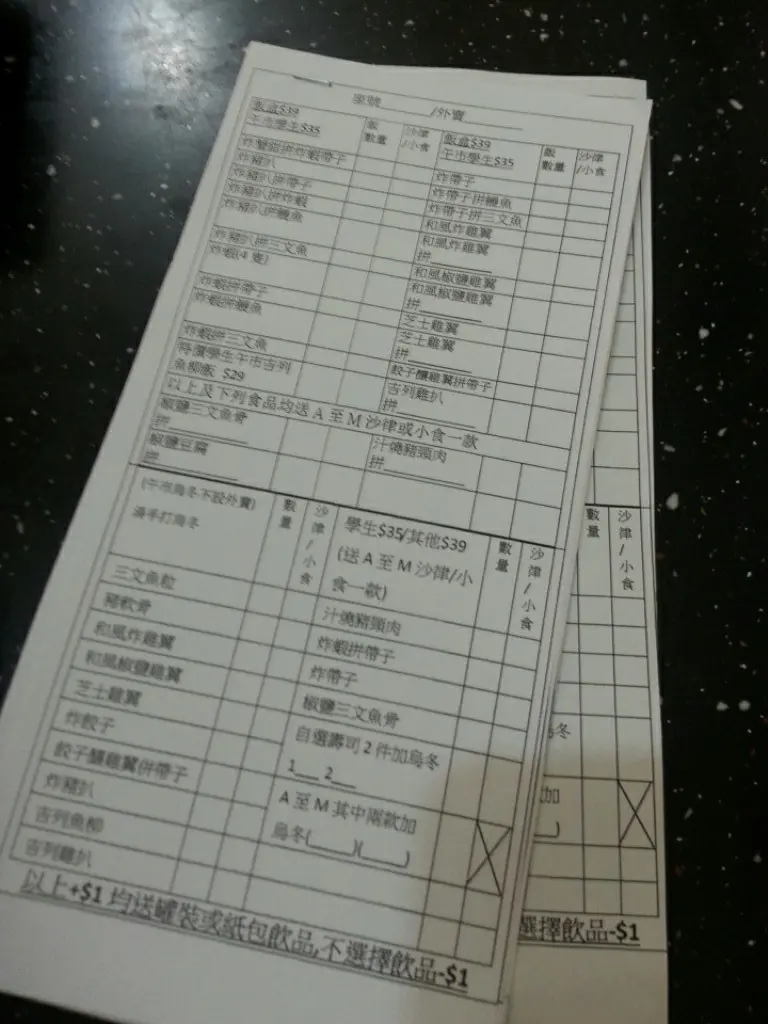 座號______/外賣________
飯盒$39
午市學生$35
飯
數量
沙律
/小食
飯盒$39
午市學生$35
飯
數量
沙律
/小食
炸蟹鉗拼炸蝦帶子
炸豬扒
炸豬扒拼帶子
炸豬扒拼炸蝦
炸豬扒拼鰻魚
炸豬扒拼三文魚
炸蝦(4隻)
炸蝦拼帶子
炸蝦拼鰻魚
炸蝦拼三文魚
特價學生午市吉列
魚柳飯 $29
炸帶子
炸帶子拼鰻魚
炸帶子拼三文魚
和風炸雞翼
和風炸雞翼
拼________
和風椒鹽雞翼
和風椒鹽雞翼
拼________
芝士雞翼
芝士雞翼
拼________
餃子釀雞翼拼帶子
吉列雞扒
拼________
以上及下列食品均送 A 至 M 沙律或小食一款
椒鹽三文魚骨
拼________
椒鹽豆腐
拼________
汁燒豬頸肉
拼________
(午市烏冬不設外賣)
滑手打烏冬
數
量
沙
律
/
小
食
學生$35/其他$39
(送 A 至 M 沙律/小
食一款)
數
量
沙
律
/
小
食
三文魚粒
豬軟骨
和風炸雞翼
和風椒鹽雞翼
芝士雞翼
炸餃子
餃子釀雞翼併帶子
炸豬扒
吉列魚柳
吉列雞扒
汁燒豬頸肉
炸蝦拼帶子
炸帶子
椒鹽三文魚骨
自選壽司 2 件加烏冬
1___ 2___
A 至 M 其中兩款加
烏冬(_____)(_____)
以上+$1 均送罐裝或紙包飲品,不選擇飲品-$1
數
量
沙
律
/
小
食
烏冬
加
選擇飲品-$1